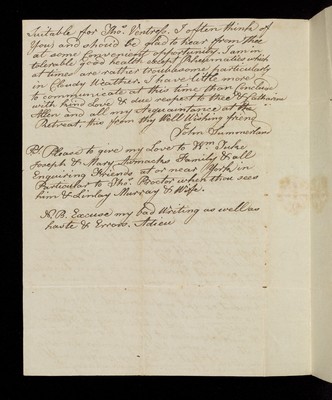 Suitable for Thos. Ventress. I often think of
You, and should be glad to hear from thee
at some Convenient opportunity. I am in
tolerable good health except Rheumatics which
at times are rather troublesome particularly
in Cloudy Weather. I have little more
to communicate at this time than Conclude
with kind Love & due respect to thee & Catharine
Allen and all my Acquaintance at the
Retreat, this from thy Well Wishing friend
John Summerland
PS Please to give my Love to Wm. Tuke
Joseph & Mary Awmacks Family & all
Enquiring Friends at or near York, in
Particular to Thos. Procter when thou sees
him & Linlay Murray & Wife.
NB. Excuse my bad Writing as well as
haste & Errors. Adieu